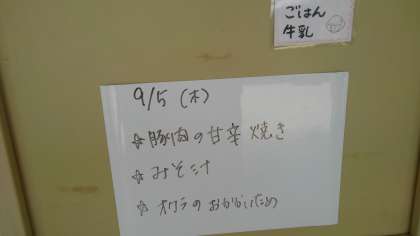 ごはん
牛乳
9/5 (木)
☆豚肉の甘辛焼き
☆みそ汁
☆オクラのおかかいため